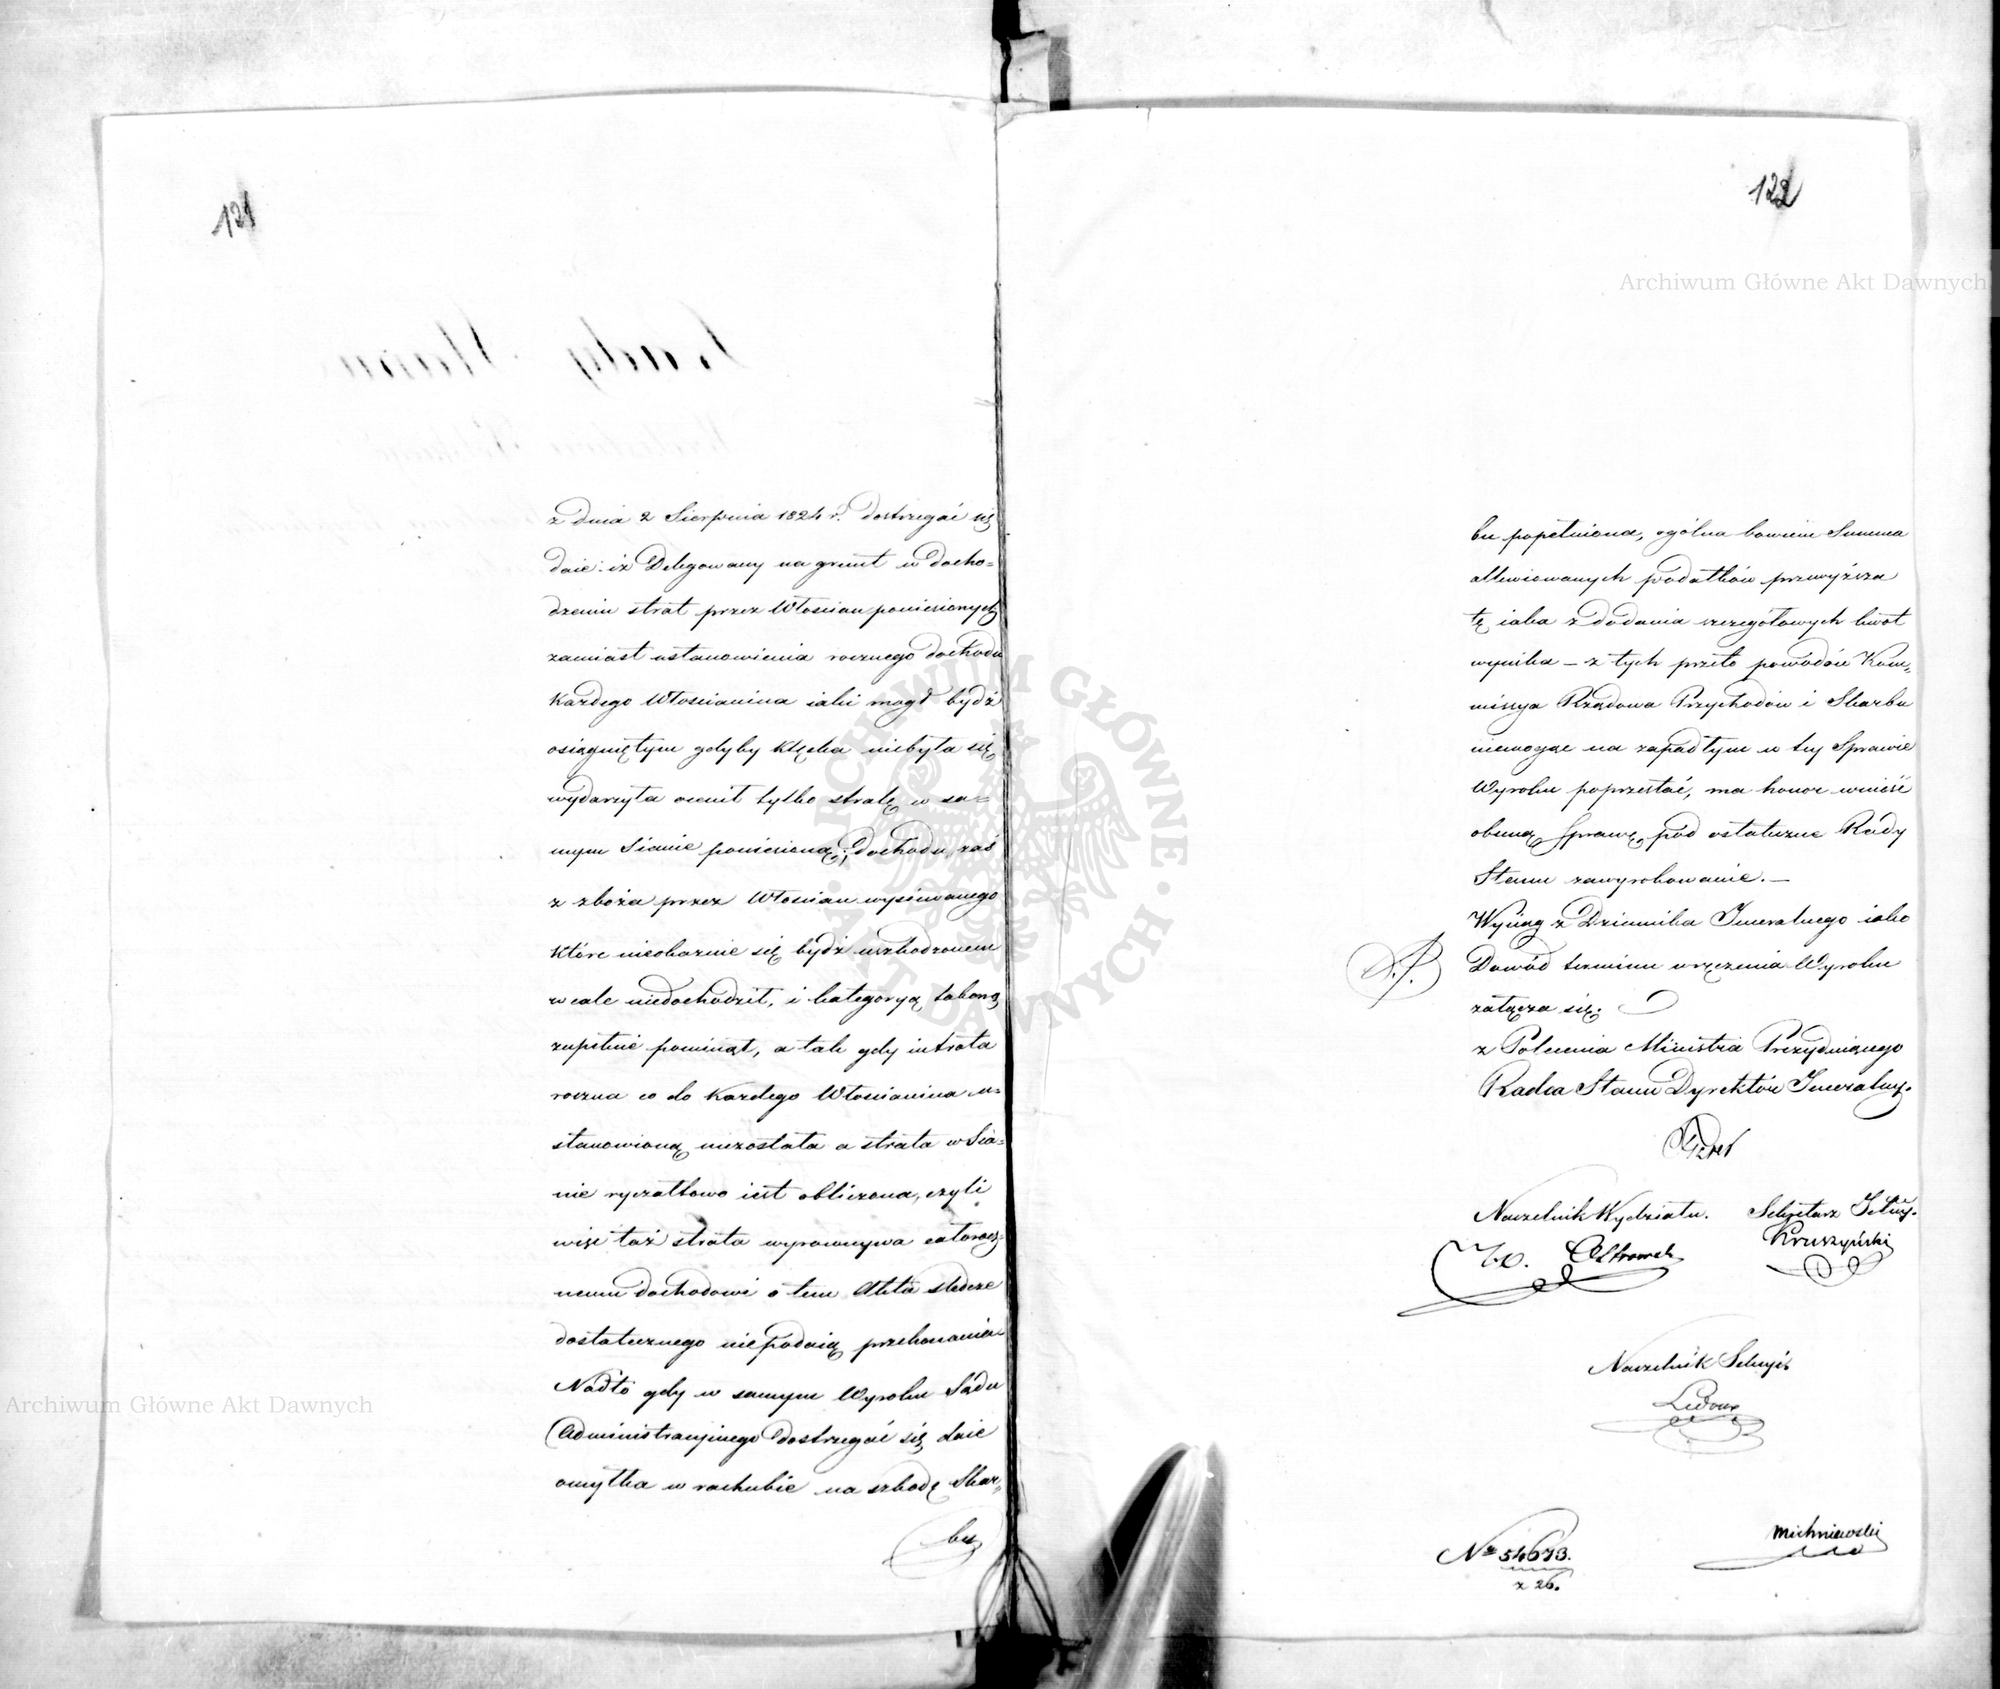 121
z dnia 2 Sierpnia 1824 r. dostrzegać się
daie: iż Delegowany na grunt w docho=
dzeniu strat przez Włościan poniesionych
zamiast ustanowienia rocznego dochodu
Każdego Włościanina iaki mógł bydź
osiągniętym gdyby klęska niebyła się
wydarzyła ocenił tylko stratę w sa=
mym Sianie poniesioną; dochodu zaś
z zboża przez Włościan wysiewanego
które nieokazuie się bydź uszkodzonem
wcale niedochodził, i kategoryą takową
zupełnie pominął, a tak gdy intrata
roczna co do Każdego Włościanina u=
stanowioną niezostała a strata w Sia=
nie ryczałtowo iest obliczona, czyli
więc taż strata wyrownywa całorocz=
nemu dochodowi o tem Akta śledcze
dostatecznego niepodaią przekonania
Nadto gdy w samym Wyroku Sądu
Administracyinego dostrzegać się daie
omyłka w rachubie na szkodę Skar=
bu
122
bu popełniona, ogólna bowiem Summa
allewiowanych podatków przewyższa
tę iaka z dodania szczegółowych kwot
wynika – z tych przeto powodów Kom=
missya Rządowa Przychodów i Skarbu
niemogąc na zapadłym w tey Sprawie
Wyroku poprzestać, ma honor wnieść
obecną Sprawę pod ostateczne Rady
Stanu zawyrokowanie. –
Wyciąg z Dziennika Jeneralnego iako
Dowód terminu wręczenia Wyroku
załącza się.
z Polecenia Ministra Prezyduiącego
Radca Stanu Dyrektor Jeneralny.
Naczelnik Wydziału. Sekretarz Jlny.
Ostrowski Kruszyński
Naczelnik Sekcyi
Ledoux
Michniewski
No 54673.
z 26.
Archiwum Główne Akt Dawnych
Archiwum Główne Akt Dawnych
ARCHIWUM GŁÓWNE AKT DAWNYCH